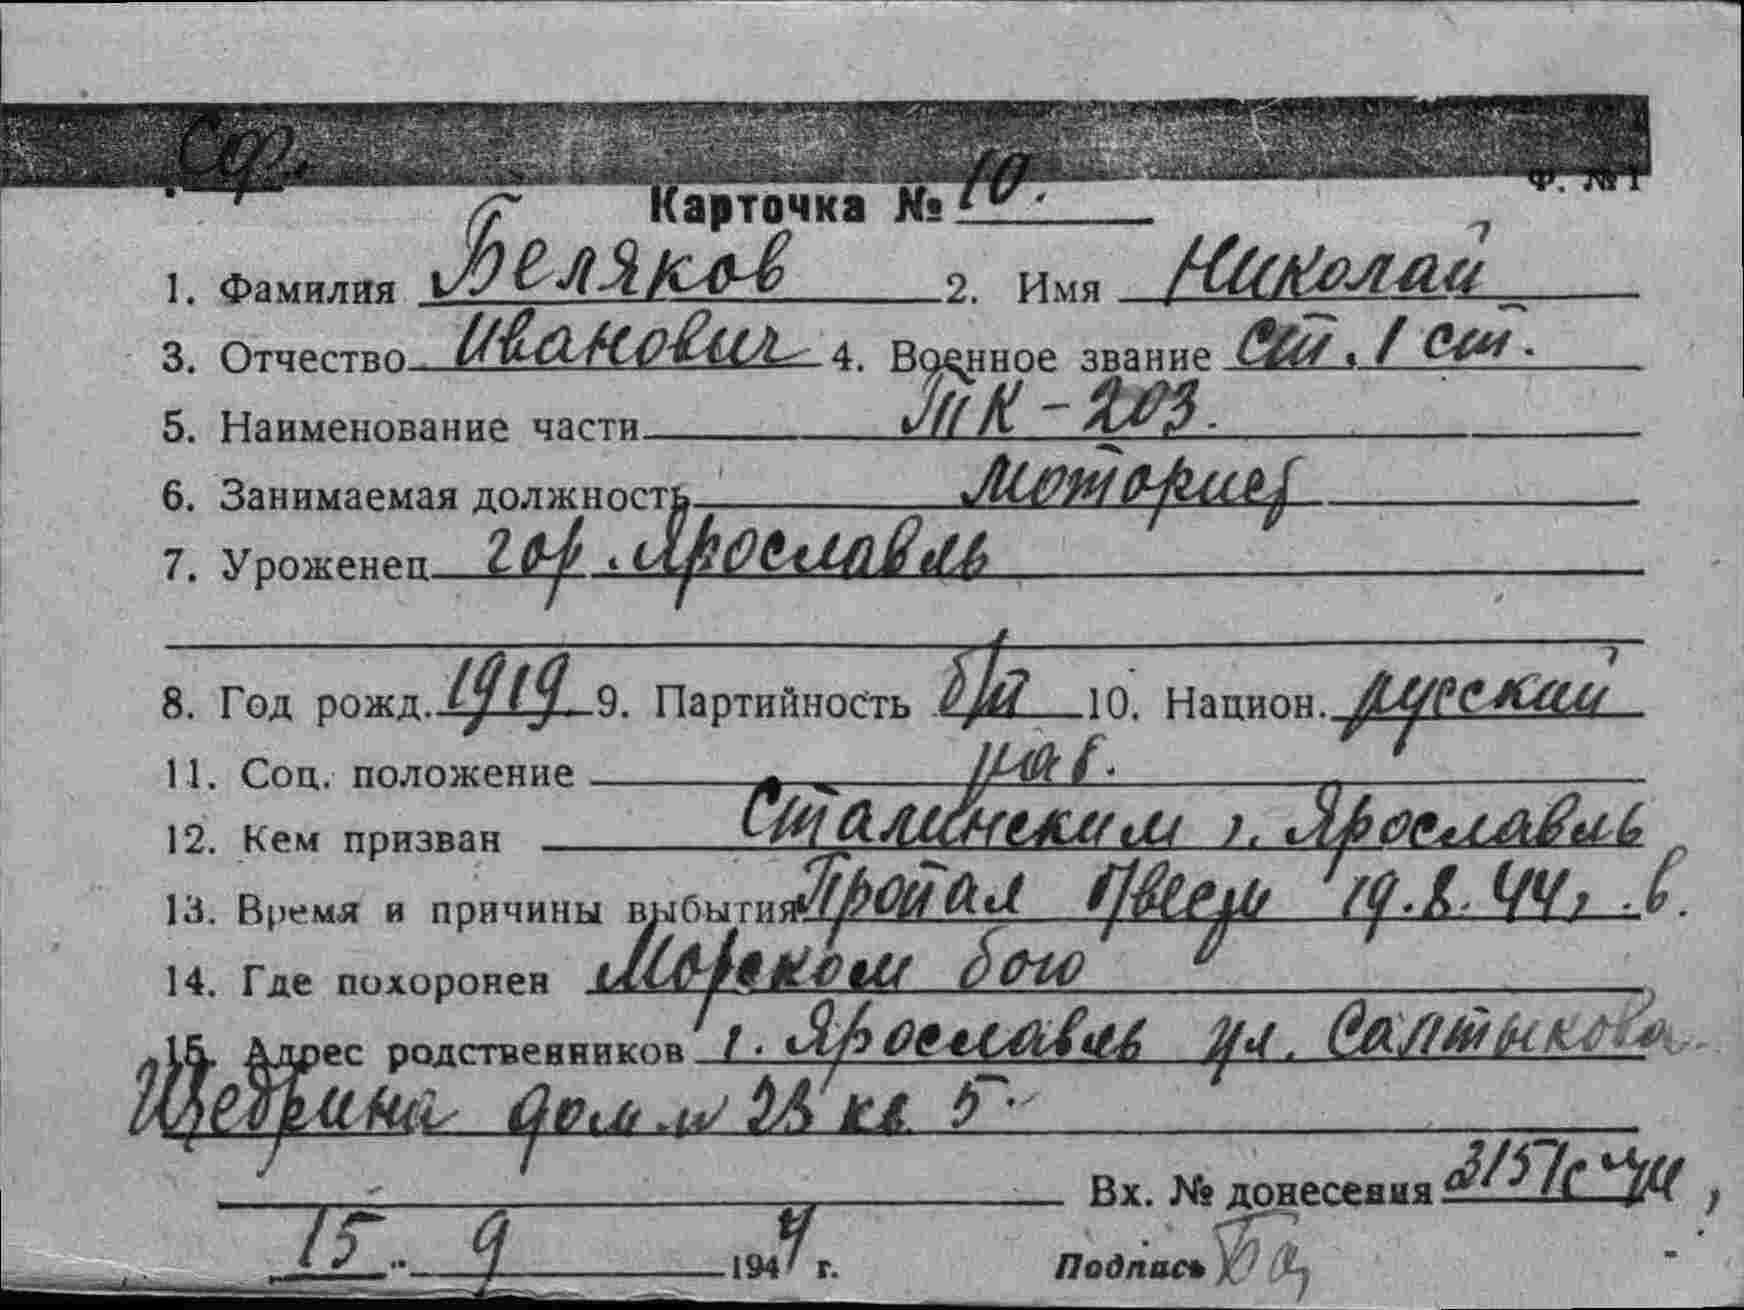 Сф.
Ф. № 1
Карточка № 10.
1. Фамилия Беляков 2. Имя Николай
3. Отчество Иванович 4. Военное звание ст. 1 ст.
5. Наименование части ТК-203.
6. Занимаемая должность моторист
7. Уроженец гор. Ярославль
8. Год рожд. 1919 9. Партийность б/п 10. Национ. русский
11. Соц. положение раб.
12. Кем призван Сталинским г. Ярославль
13. Время и причины выбытия Пропал 19.8.44г. в.
14. Где похоронен Морском бою
15. Адрес родственников г. Ярославль ул. Салтыкова
Щедрина дом № 23 кв. 5.
Вх. № донесения
15. 9 1944 г. Подпись